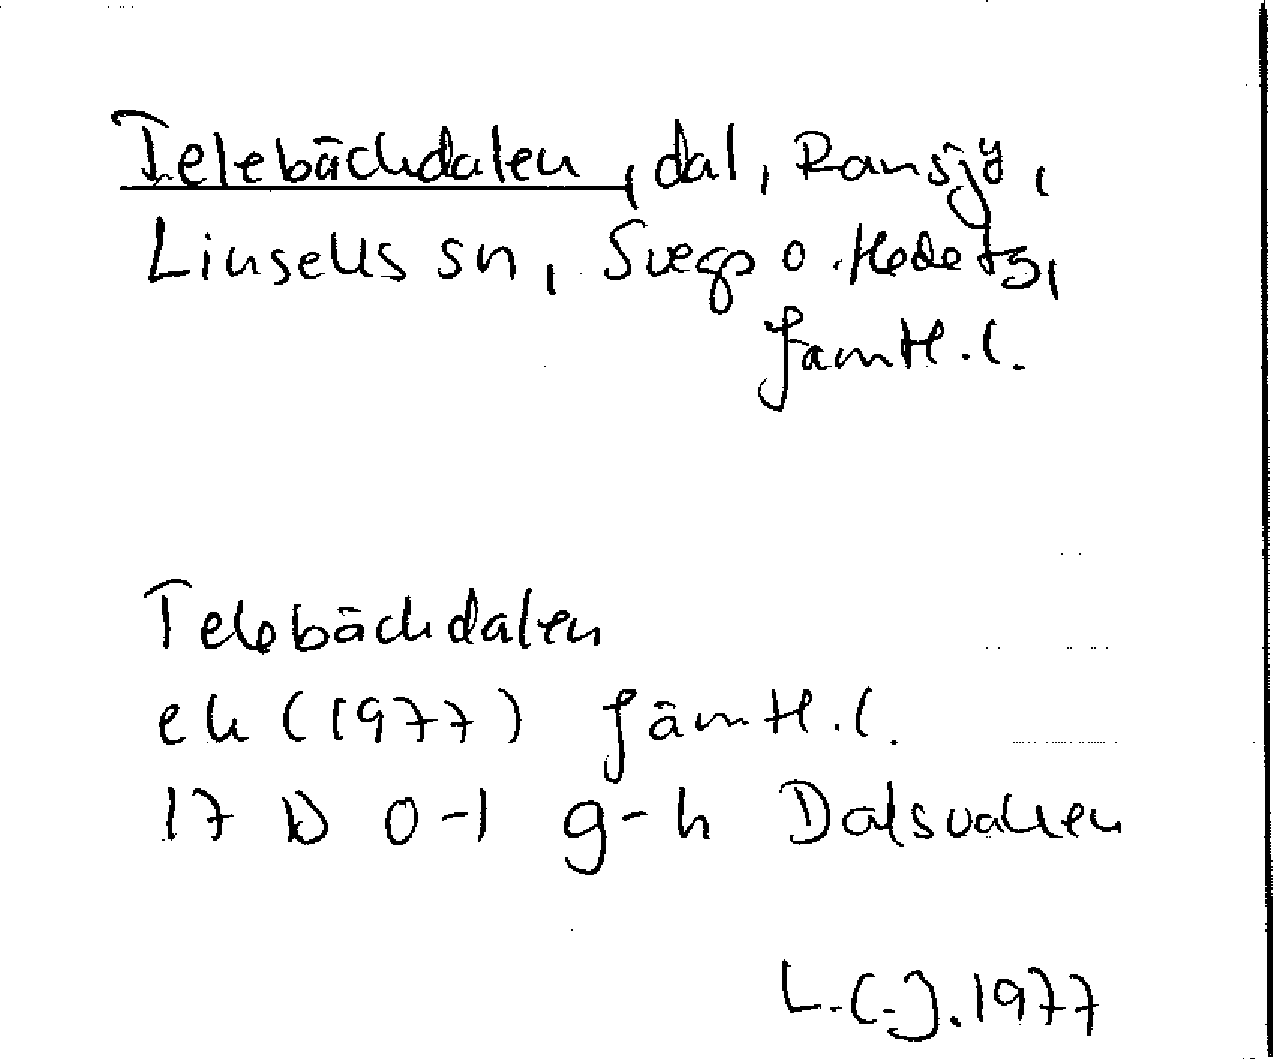 Telebäckdalen, dal, Ransjö,
Linsells sn, Svegs o. Hede tg,
Jämtl. l.
Telebäckdalen
ek (1977) Jämtl. l.
17 D 0-1 g-h Dalsvallen
L.C.J. 1977